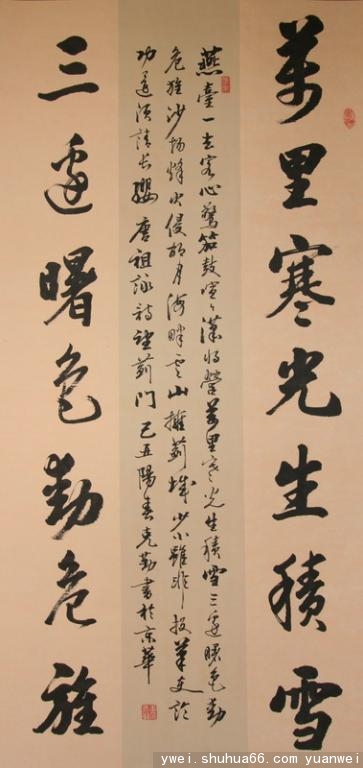 萬里寒光生積雪
燕臺一去客心驚笳鼓喧〻漢將營萬里寒光生積雪三邊曙色動
危旌沙場烽火侵胡月海畔雲山擁薊城少小雖非投筆吏論
功還須請長纓 唐祖詠詩望薊門 己丑陽春克勤書於京華
三邊曙色動危旌
ywei.shuhua66.com yuanwei